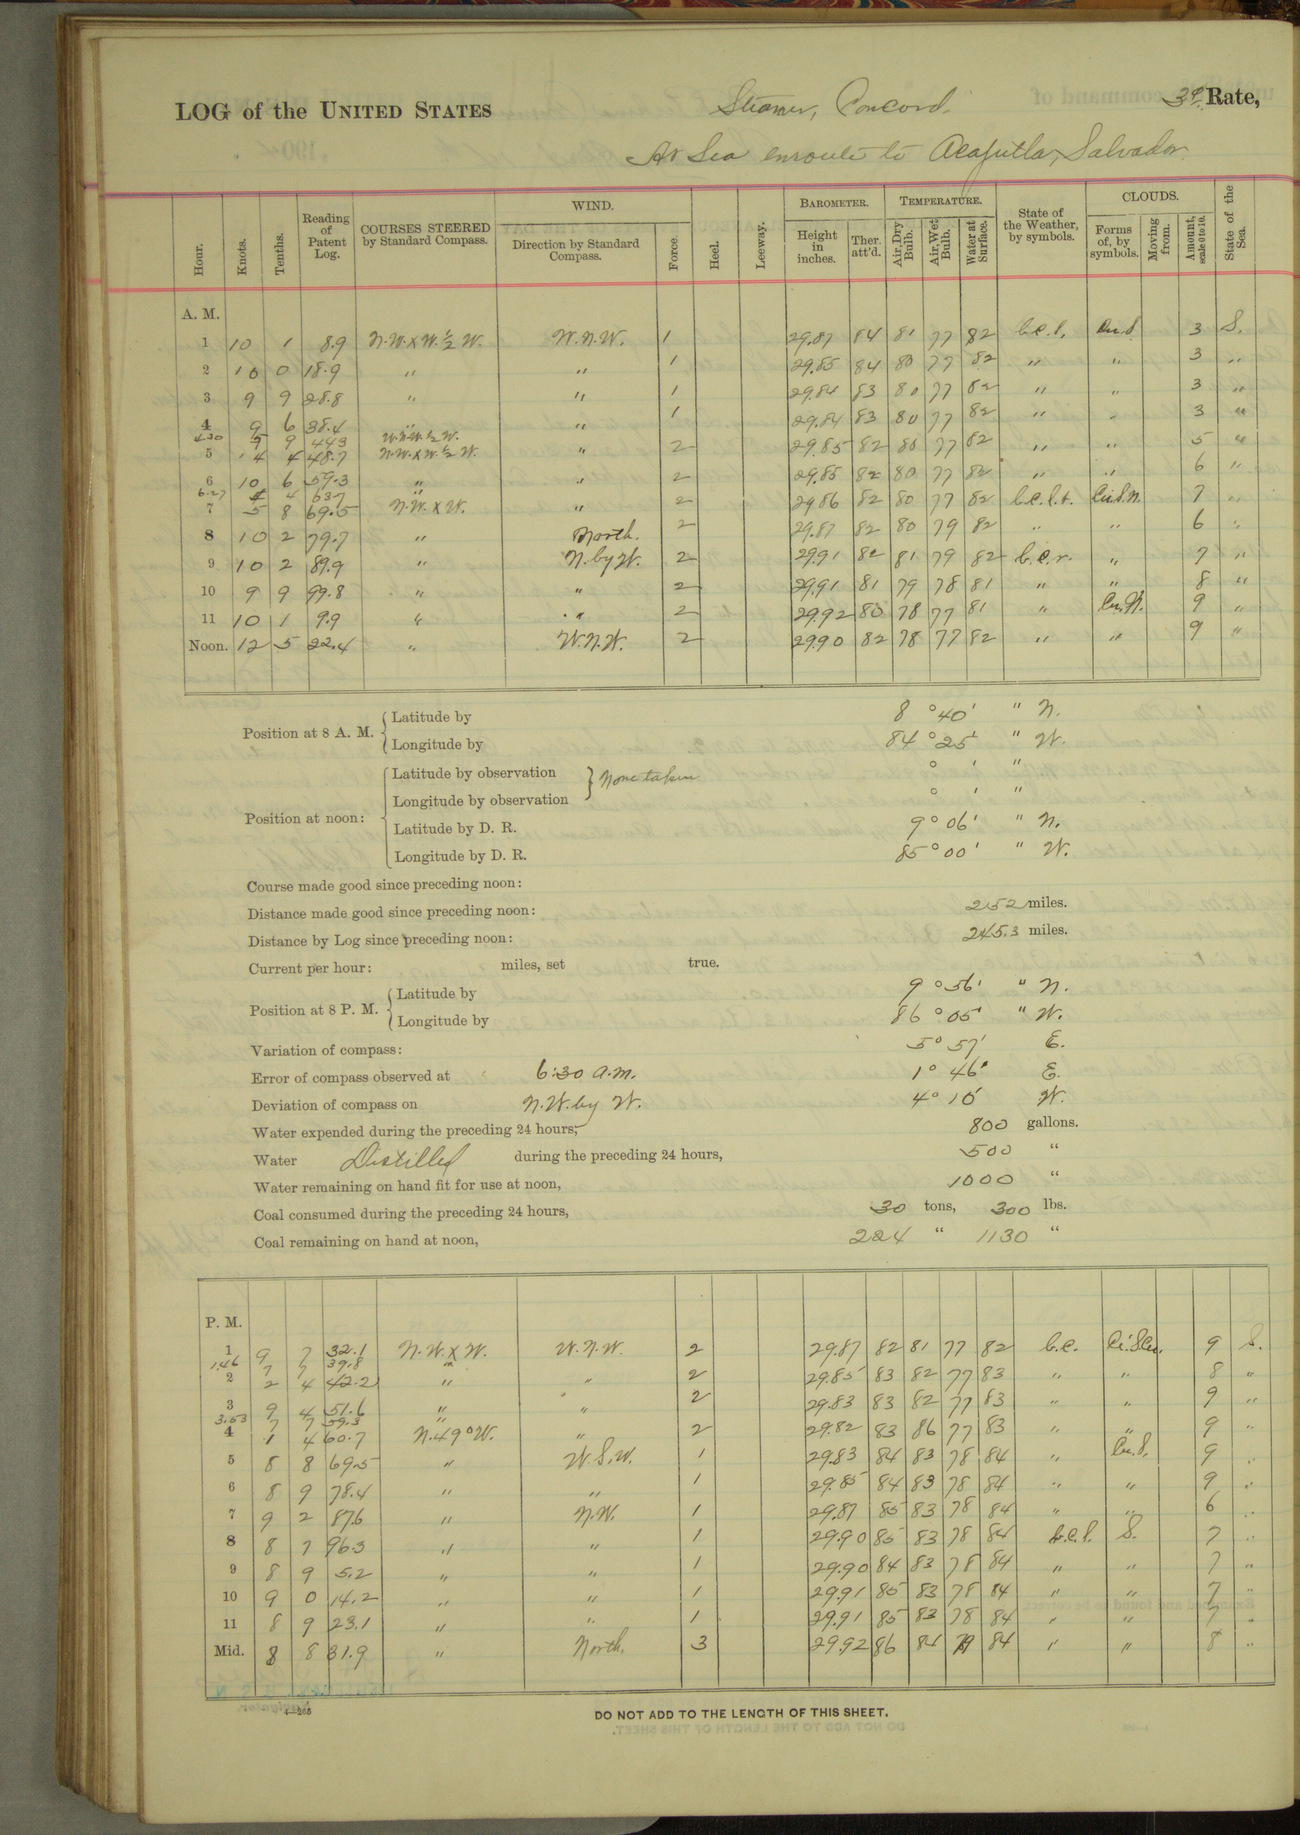 LOG of the UNITED STATES Steamer, Concord. 3d Rate,
At Sea enroute to Acajutla, Salvador.
Hour. Knots. Tenths. Reading of Patent Log. COURSES STEERED by Standard Compass. WIND. Direction by Standard Compass. Force. Heel. Leeway. BAROMETER. Height in inches. Ther. att'd. TEMPERATURE. Air, Dry Bulb. Air, Wet Bulb. Water at Surface. State of the Weather, by symbols. CLOUDS. Forms of, by symbols. Moving from. Amount, scale 0 to 10. State of the Sea.
A. M.
1 10 1 8.9 N.W.xW.½W. W.N.W. 1 29.87 84 81 77 82 b.c.l. Cu.S. 3 S.
2 10 0 18.9 " " 1 29.85 84 80 77 82 " " 3 "
3 9 9 28.8 " " 1 29.84 83 80 77 82 " " 3 "
4 9 6 38.4 " " 1 29.84 83 80 77 82 " " 3 "
4.30 5 9 44.3
5 4 4 48.7 N.W.xW.½W. " 2 29.85 82 80 77 82 " " 5 "
6 10 6 59.3 " " 2 29.85 82 80 77 82 " " 6 "
6.27 4 4 63.7 "
7 5 8 69.5 N.W.xW. " 2 29.86 82 80 77 82 b.c.l.t. Cu.S.N. 7 "
8 10 2 79.7 " North. 2 29.87 82 80 79 82 " " 6 "
9 10 2 89.9 " N.by W. 2 29.91 82 81 79 82 b.c.r. " 7 "
10 9 9 99.8 " " 2 29.91 81 79 78 81 " " 8 "
11 10 1 9.9 " " 2 29.92 80 78 77 81 " Cu.N. 9 "
Noon. 12 5 22.4 " W.N.W. 2 29.90 82 78 77 82 " " 9 "
Position at 8 A. M. Latitude by 8 ° 40 ' " N.
Longitude by 84 ° 25 ' " W.
Position at noon: Latitude by observation None taken ° ' "
Longitude by observation ° ' "
Latitude by D. R. 9 ° 06 ' " N.
Longitude by D. R. 85 ° 00 ' " W.
Course made good since preceding noon:
Distance made good since preceding noon: 252 miles.
Distance by Log since preceding noon: 245.3 miles.
Current per hour: miles, set true.
Position at 8 P. M. Latitude by 9 ° 56 ' " N.
Longitude by 86 ° 05 ' " W.
Variation of compass: 5° 57' E.
Error of compass observed at 6:30 a.m. 1° 46' E.
Deviation of compass on N.W.by W. 4° 10' W.
Water expended during the preceding 24 hours, 800 gallons.
Water Distilled during the preceding 24 hours, 500 "
Water remaining on hand fit for use at noon, 1000 "
Coal consumed during the preceding 24 hours, 30 tons, 300 lbs.
Coal remaining on hand at noon, 224 " 1130 "
P. M.
1 9 7 32.1 N.W.xW. W.N.W. 2 29.87 82 81 77 82 b.c. Ci.S.Cu. 9 S.
1.46 7 7 39.8 "
2 2 4 42.2 " " 2 29.85 83 82 77 83 " " 8 "
3 9 4 51.6 " " 2 29.83 83 82 77 83 " " 9 "
3.53 7 7 59.3 "
4 1 4 60.7 N.49°W. " 2 29.82 83 86 77 83 " " 9 "
5 8 8 69.5 " W.S.W. 1 29.83 84 83 78 84 " Cu.S. 9 "
6 8 9 78.4 " " 1 29.85 84 83 78 84 " " 9 "
7 9 2 87.6 " N.W. 1 29.87 85 83 78 84 " " 6 "
8 8 7 96.3 " " 1 29.90 85 83 78 84 b.c.l. S. 7 "
9 8 9 5.2 " " 1 29.90 84 83 78 84 " " 7 "
10 9 0 14.2 " " 1 29.91 85 83 78 84 " " 7 "
11 8 9 23.1 " " 1 29.91 85 83 78 84 " " 7 "
Mid. 8 8 31.9 " North. 3 29.92 86 84 79 84 " " 8 "
DO NOT ADD TO THE LENGTH OF THIS SHEET.